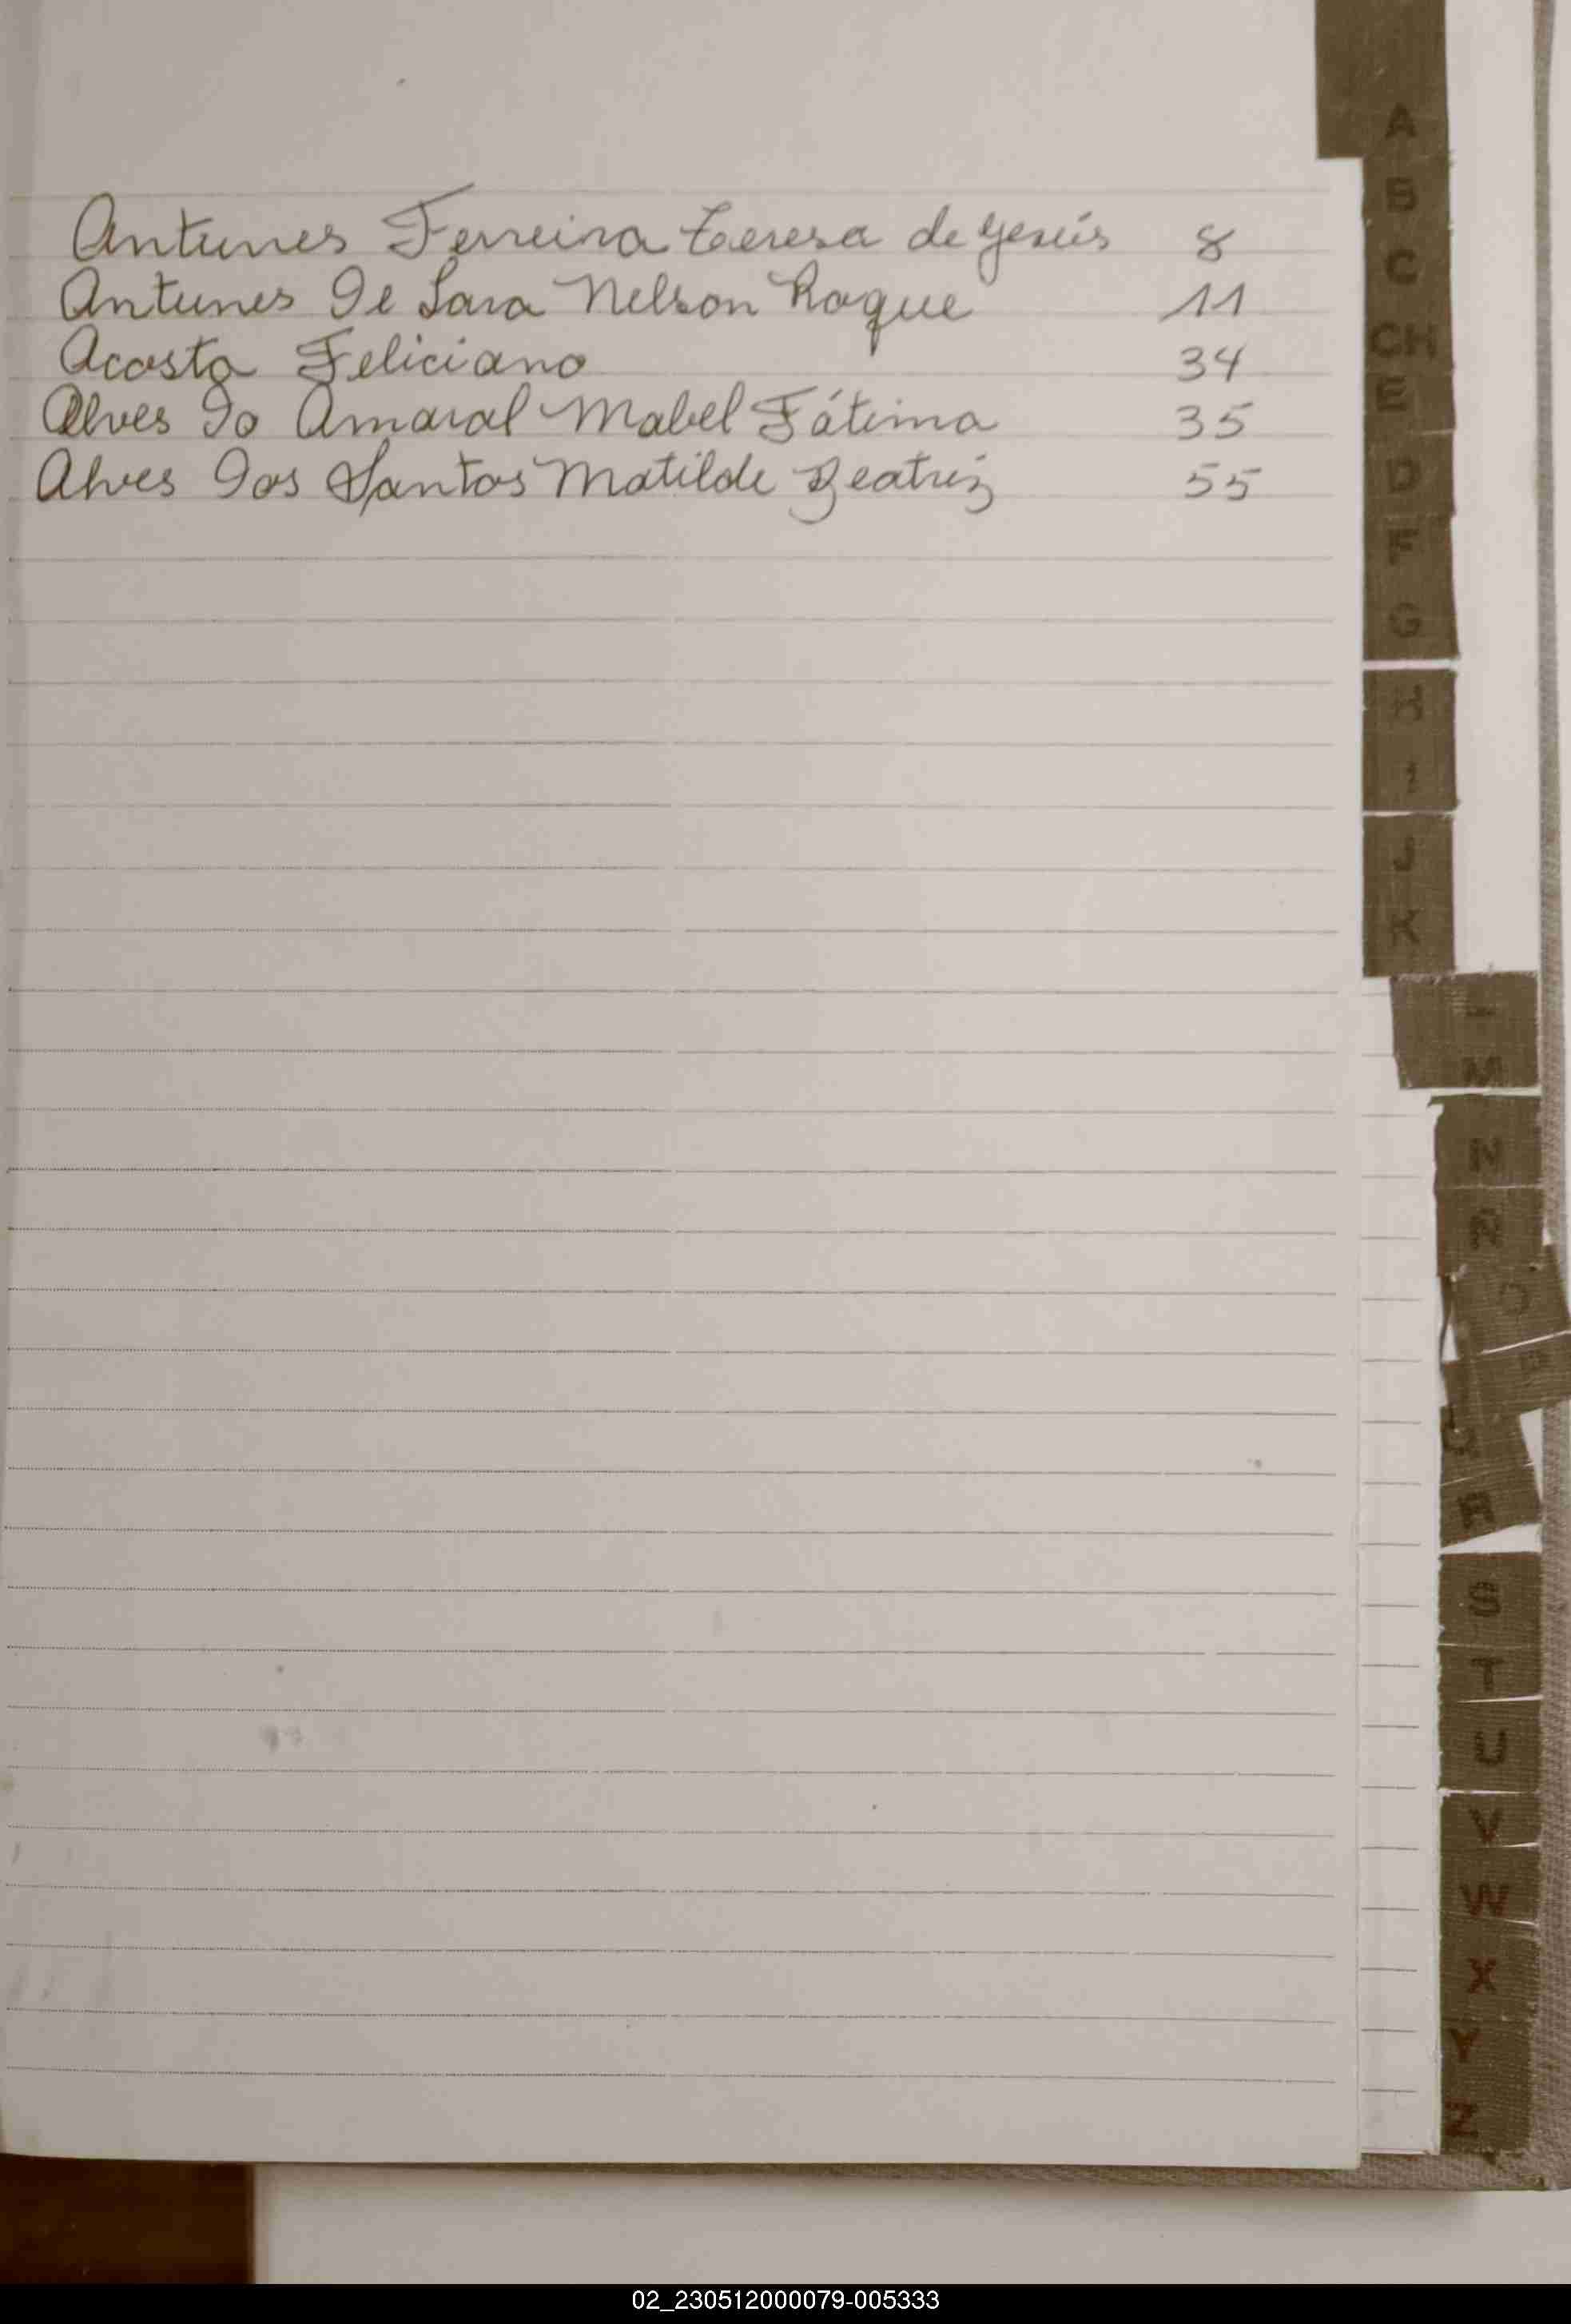 Antunes Ferreira Teresa de Jesús 8
Antunes De Lara Nelson Roque 11
Acosta Feliciano 34
Alves Do Amaral Mabel Fátima 35
Alves Dos Santos Matilde Beatriz 55
A
B
C
CH
E
D
F
G
H
I
J
K
M
N
Ñ
O
P
Q
R
S
T
U
V
W
X
Y
Z
02_230512000079-005333